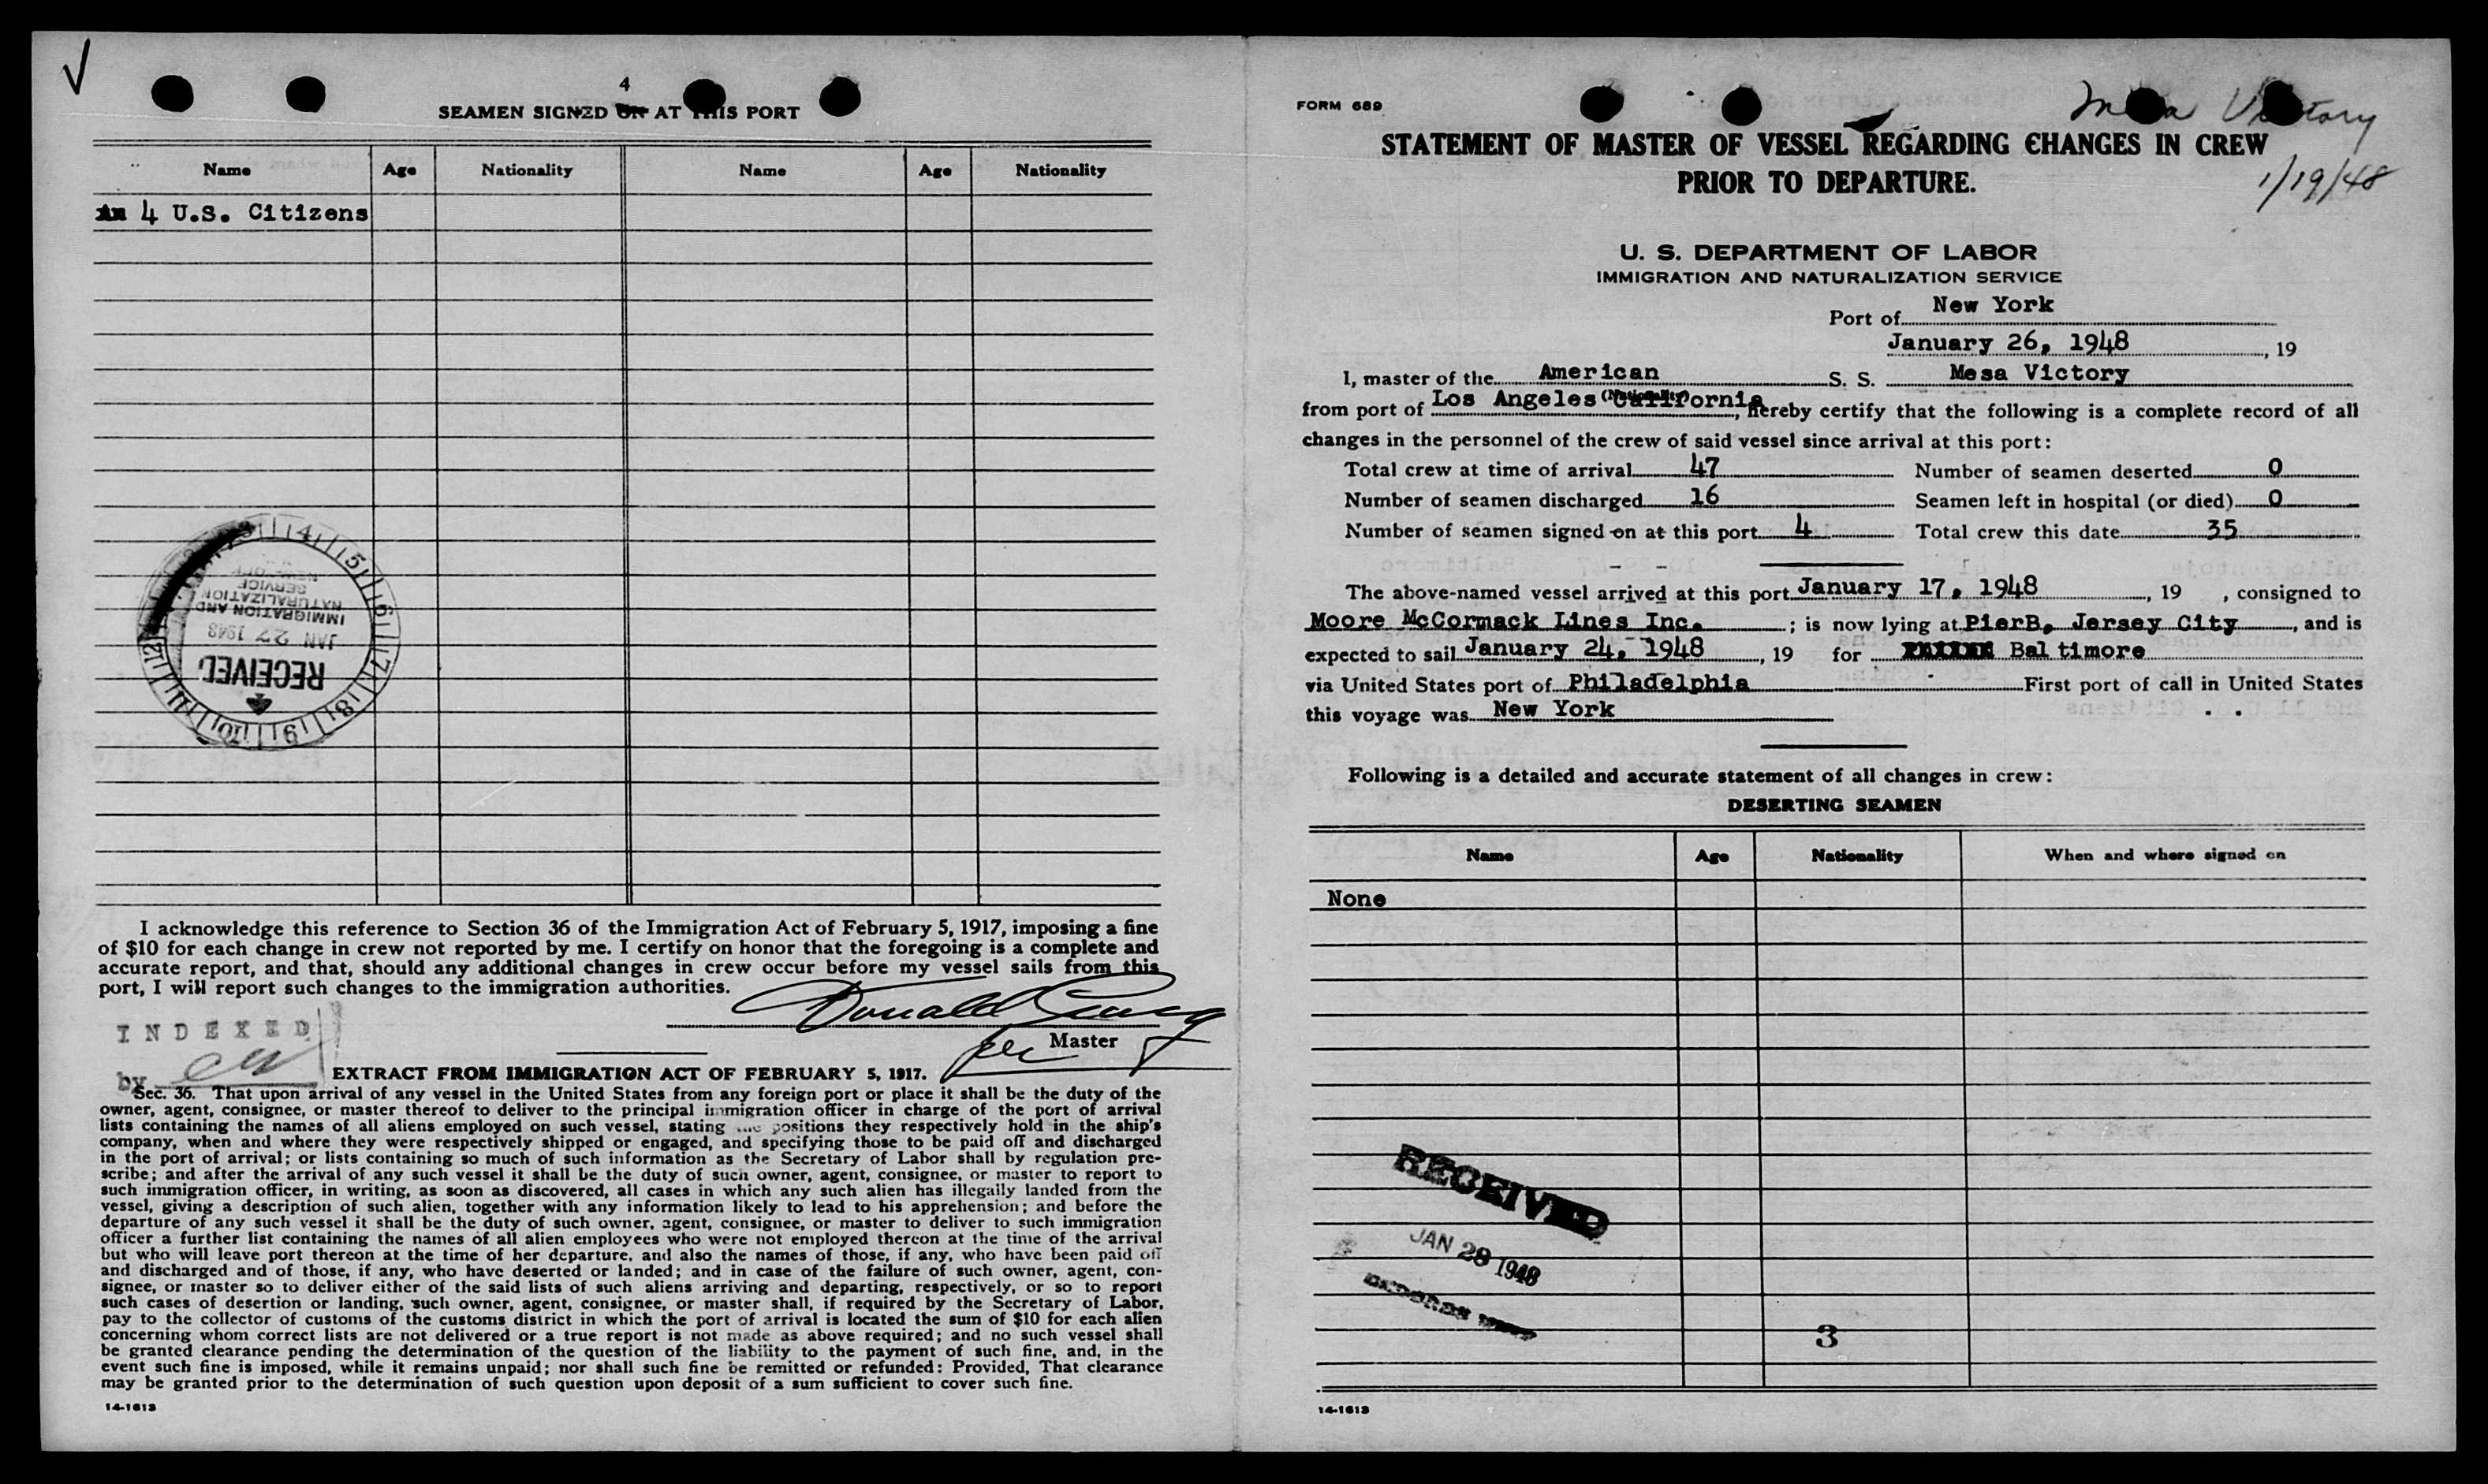 4
SEAMEN SIGNED ON AT THIS PORT
Name Age Nationality Name Age Nationality
4 U.S. Citizens
RECEIVED
JAN 27 1948
IMMIGRATION AND
NATURALIZATION
SERVICE
I acknowledge this reference to Section 36 of the Immigration Act of February 5, 1917, imposing a fine
of $10 for each change in crew not reported by me. I certify on honor that the foregoing is a complete and
accurate report, and that, should any additional changes in crew occur before my vessel sails from this
port, I will report such changes to the immigration authorities.
Donald
Master
INDEXED
by
EXTRACT FROM IMMIGRATION ACT OF FEBRUARY 5, 1917.
Sec. 36. That upon arrival of any vessel in the United States from any foreign port or place it shall be the duty of the
owner, agent, consignee, or master thereof to deliver to the principal immigration officer in charge of the port of arrival
lists containing the names of all aliens employed on such vessel, stating the positions they respectively hold in the ship's
company, when and where they were respectively shipped or engaged, and specifying those to be paid off and discharged
in the port of arrival; or lists containing so much of such information as the Secretary of Labor shall by regulation pre-
scribe; and after the arrival of any such vessel it shall be the duty of such owner, agent, consignee, or master to report to
such immigration officer, in writing, as soon as discovered, all cases in which any such alien has illegally landed from the
vessel, giving a description of such alien, together with any information likely to lead to his apprehension; and before the
departure of any such vessel it shall be the duty of such owner, agent, consignee, or master to deliver to such immigration
officer a further list containing the names of all alien employees who were not employed thereon at the time of the arrival
but who will leave port thereon at the time of her departure, and also the names of those, if any, who have been paid off
and discharged and of those, if any, who have deserted or landed; and in case of the failure of such owner, agent, con-
signee, or master so to deliver either of the said lists of such aliens arriving and departing, respectively, or so to report
such cases of desertion or landing, such owner, agent, consignee, or master shall, if required by the Secretary of Labor,
pay to the collector of customs of the customs district in which the port of arrival is located the sum of $10 for each alien
concerning whom correct lists are not delivered or a true report is not made as above required; and no such vessel shall
be granted clearance pending the determination of the question of the liability to the payment of such fine, and, in the
event such fine is imposed, while it remains unpaid; nor shall such fine be remitted or refunded: Provided, That clearance
may be granted prior to the determination of such question upon deposit of a sum sufficient to cover such fine.
14-1613
FORM 689
Mesa Victory
1/19/48
STATEMENT OF MASTER OF VESSEL REGARDING CHANGES IN CREW
PRIOR TO DEPARTURE.
U. S. DEPARTMENT OF LABOR
IMMIGRATION AND NATURALIZATION SERVICE
Port of New York
January 26, 1948, 19
I, master of the American S. S. Mesa Victory
(Nationality)
from port of Los Angeles California, hereby certify that the following is a complete record of all
changes in the personnel of the crew of said vessel since arrival at this port:
Total crew at time of arrival 47 Number of seamen deserted 0
Number of seamen discharged 16 Seamen left in hospital (or died) 0
Number of seamen signed on at this port 4 Total crew this date 35
The above-named vessel arrived at this port January 17, 1948, 19 , consigned to
Moore McCormack Lines Inc. ; is now lying at PierB, Jersey City, and is
expected to sail January 24, 1948, 19 for Baltimore
via United States port of Philadelphia First port of call in United States
this voyage was New York
Following is a detailed and accurate statement of all changes in crew:
DESERTING SEAMEN
Name Age Nationality When and where signed on
None
RECEIVED
JAN 28 1948
3
14-1613